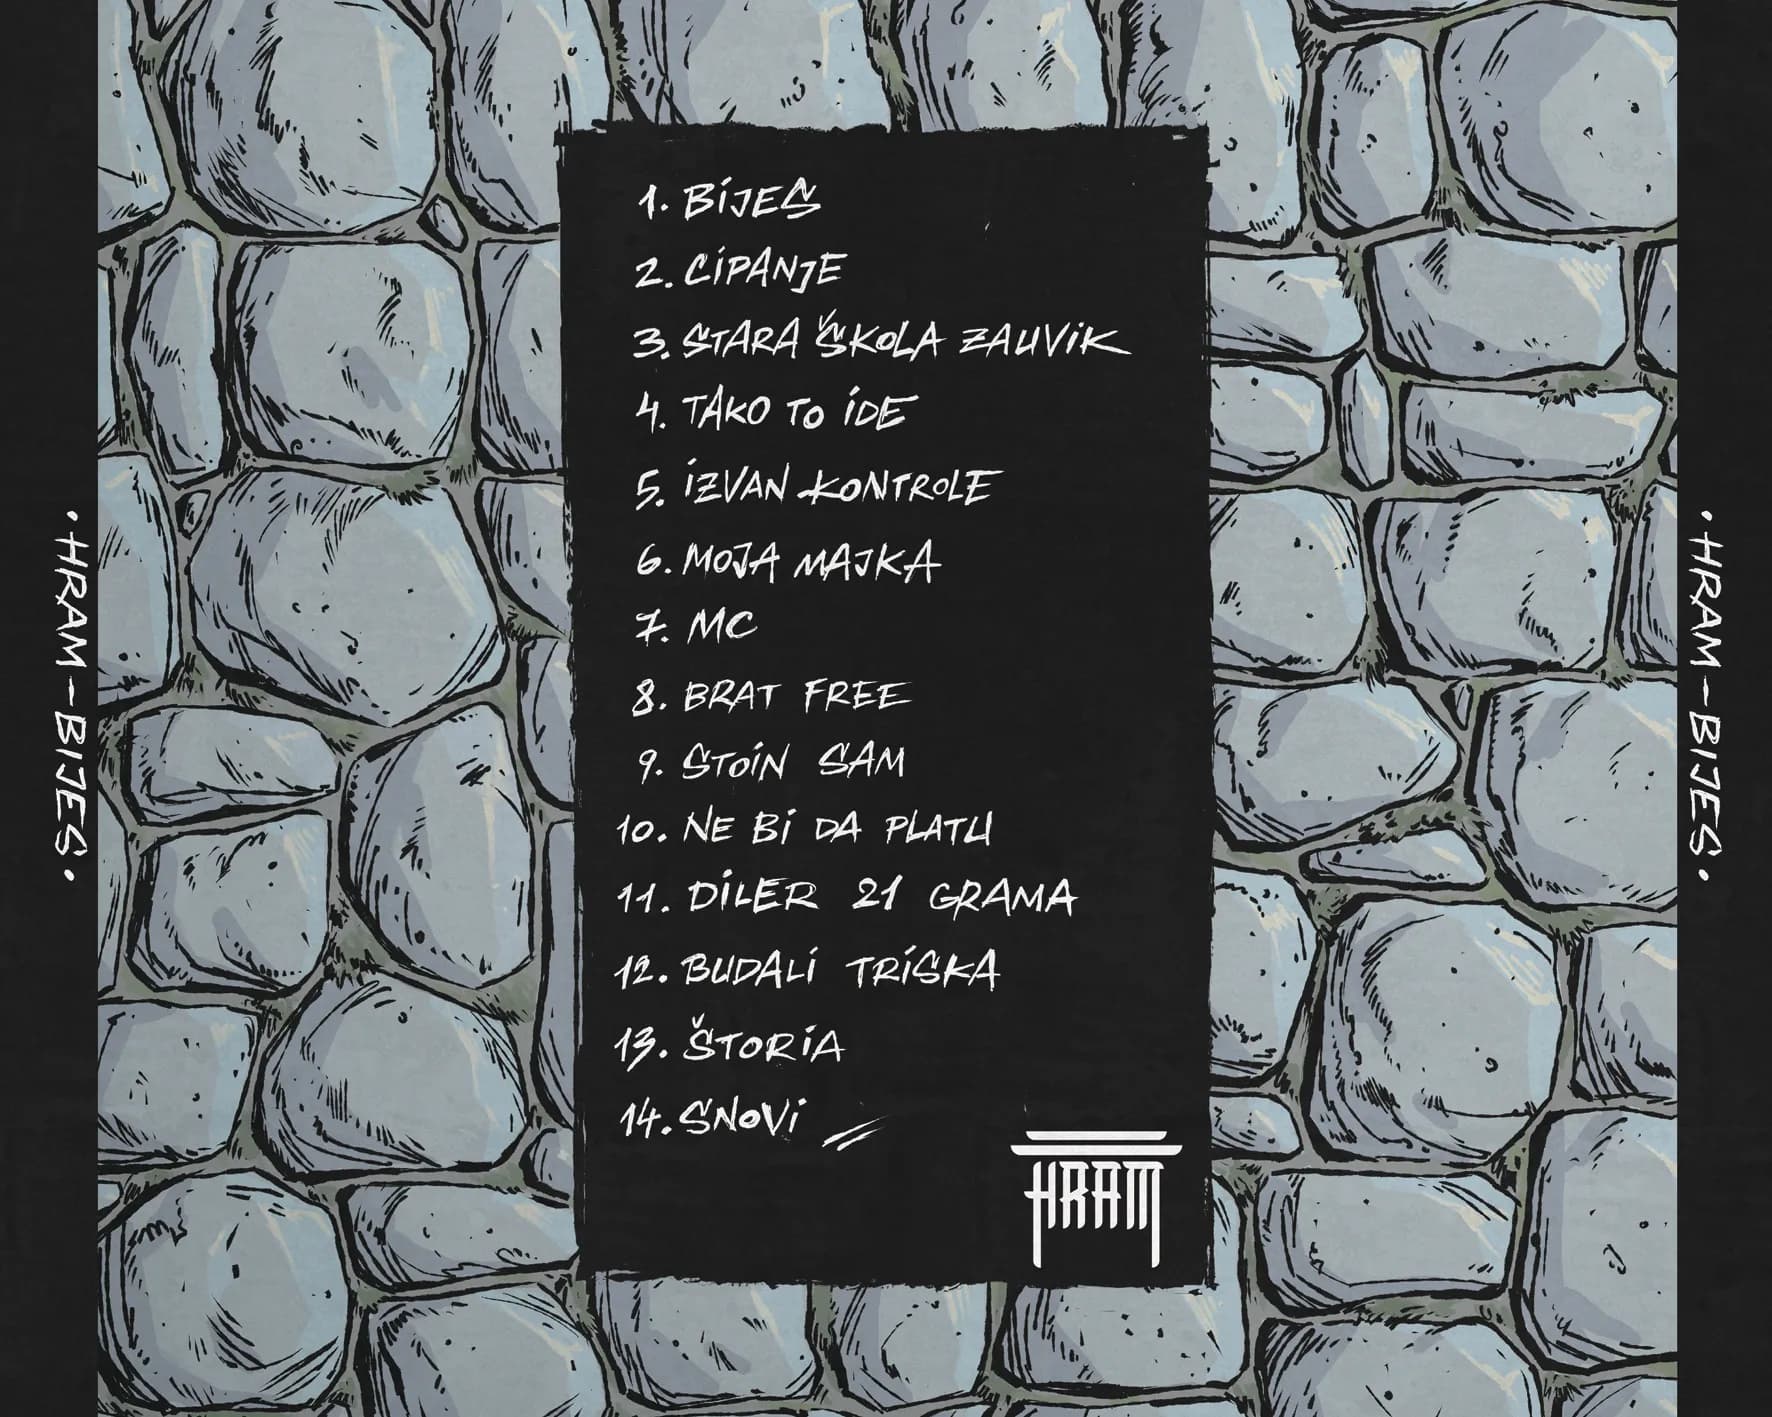 1. BIJES
2. CIPANJE
3. STARA ŠKOLA ZAUVIK
4. TAKO TO IDE
5. IZVAN KONTROLE
6. MOJA MAJKA
7. MC
8. BRAT FREE
9. STOIN SAM
10. NE BI DA PLATU
11. DILER 21 GRAMA
12. BUDALI TRISKA
13. ŠTORIA
14. SNOVI
HRAM
• HRAM - BIJES •
• HRAM - BIJES •